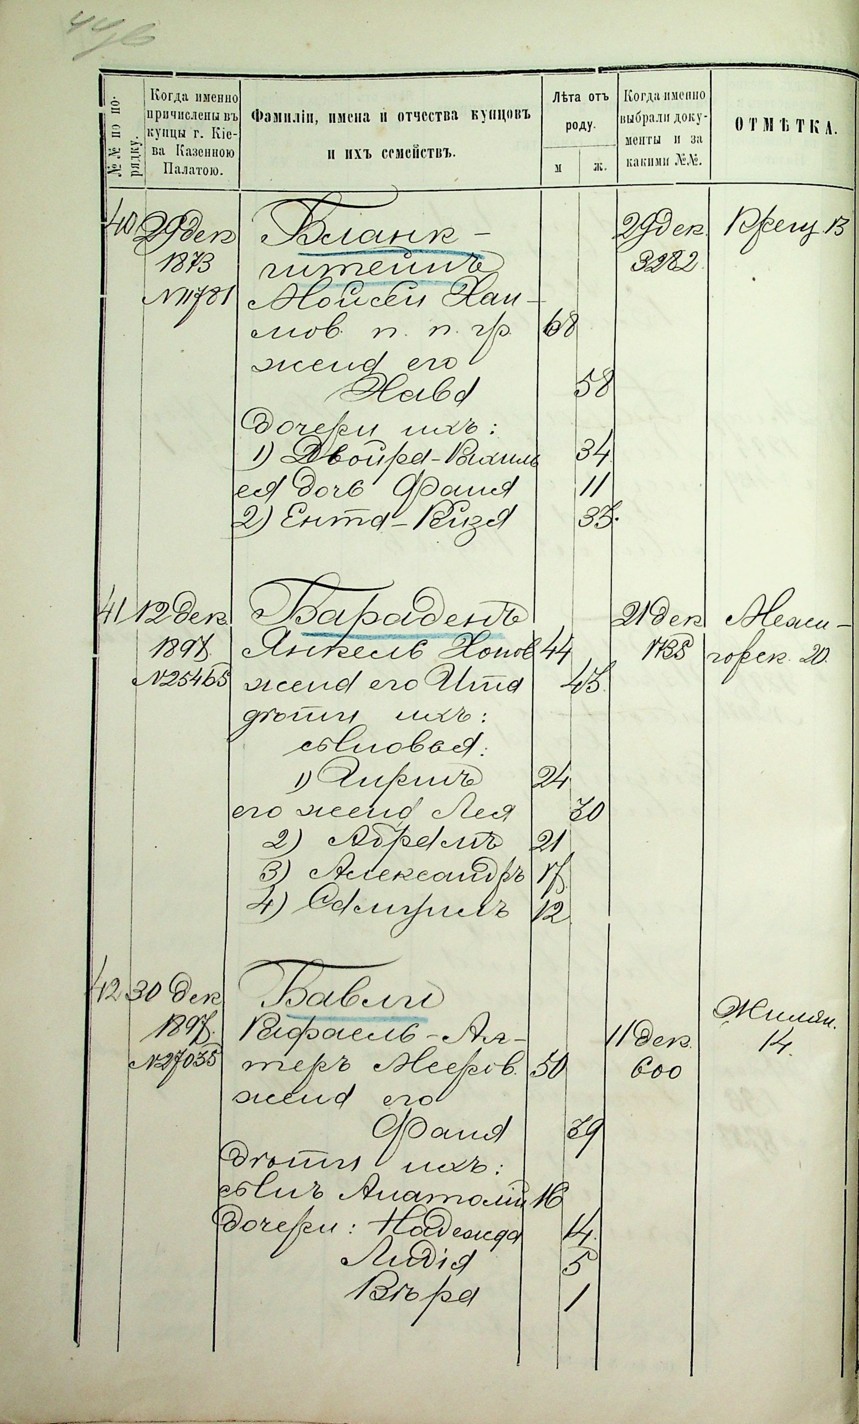 №№ по по-
рядку.
Когда именно
причислены въ
купцы г. Кіе-
ва Казенною
Палатою.
Фамиліи, имена и отчества купцовъ
и ихъ семействъ.
Лѣта отъ
роду.
м
ж.
Когда именно
выбрали доку-
менты и за
какими №№.
ОТМѢТКА.
40 29 дек Бланк- 29 дек. Крещ. 13
1873 штейнъ 3282
N11781 Мойсей Хаи-
мов. п. п. гр. 68
жена его
Хава 58
дочери ихъ:
1) Двойра-Рахиль 34
ея дочь Фаня 11
2) Ента-Рейзя 33.
41 12 дек Бараденъ 21 дек Межи-
1897 Янкель Хонов 44 1735 горск. 20.
N25465 жена его Ита 43.
дѣти ихъ:
сыновья:
1) Хиршъ 24
его жена Лея 20
2) Абрамъ 21
3) Александръ 17
4) Самуилъ 12
42 30 дек Бавли Жилян.
1897. Рафаель-Ал- 11 дек. 14.
N27035 теръ Мееров. 50 600
жена его
Фаня 39
Дѣти ихъ:
сынъ Анатолій 16
Дочери: Надежда 14.
Лидія 5
Вѣра 1